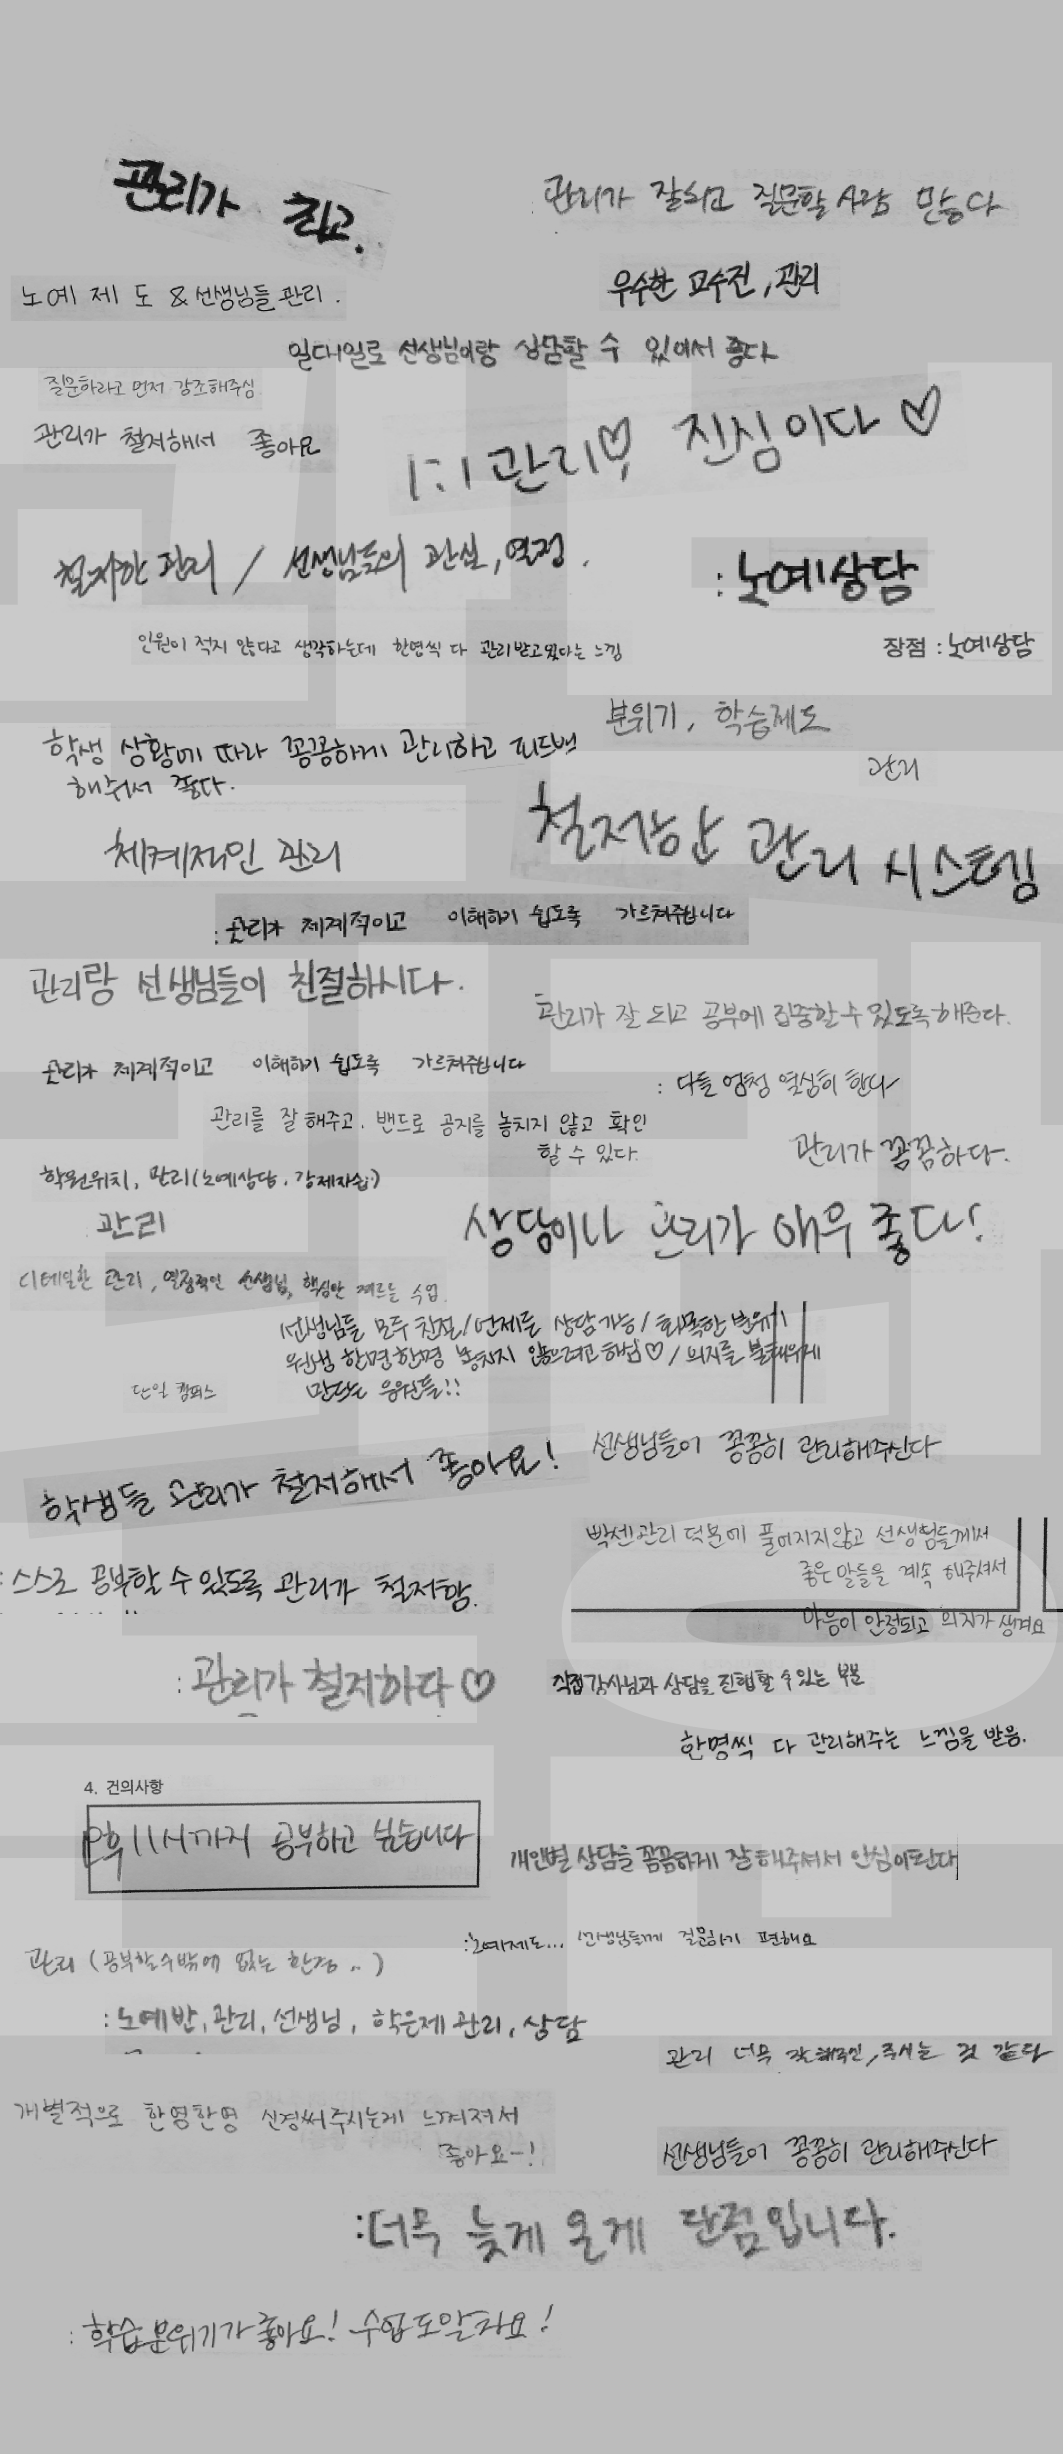 관리가 최고.
관리가 잘되고 질문할 사람 많다
노예 제 도 & 선생님들 관리.
우수한 교수진, 관리
일대일로 선생님이랑 상담할 수 있어서 좋다
질문하라고 먼저 강조해주심
관리가 철저해서 좋아요
1:1 관리♡, 진심이다 ♡
철저한 관리 / 선생님들의 관심, 열정.
: 노예상담
인원이 적지 않다고 생각하는데 한명씩 다 관리받고있다는 느낌
장점 : 노예상담
분위기, 학습제도
학생 상황에 따라 꼼꼼하게 관리하고 피드백
해줘서 좋다.
관리
철저한 관리 시스템
체계적인 관리
: 관리가 체계적이고 이해하기 쉽도록 가르쳐주십니다
관리랑 선생님들이 친절하시다.
관리가 잘 되고 공부에 집중할 수 있도록 해준다.
관리가 체계적이고 이해하기 쉽도록 가르쳐주십니다
: 다들 엄청 열심히 한다
관리를 잘 해주고. 밴드로 공지를 놓치지 않고 확인
할 수 있다.
관리가 꼼꼼하다.
학원위치, 관리(노예상담, 강제자습)
관리
상담이나 관리가 매우 좋다!
디테일한 관리, 열정적인 선생님, 핵심만 찌르는 수업
선생님들 모두 친절/언제든 상담가능/화목한 분위기
원생 한명한명 놓치지 않으려고 해줌♡/의지를 불태우게
만드는 응원들!!
단일 캠퍼스
선생님들이 꼼꼼히 관리해주신다
학생들 관리가 철저해서 좋아요!
빡센관리 덕분에 풀어지지않고 선생님들께서
좋은 말들을 계속 해주셔서
마음이 안정되고 의지가 생겨요
: 스스로 공부할 수 있도록 관리가 철저함.
: 관리가 철저하다 ♡
직접 강사님과 상담을 진행할 수 있는 부분
한명씩 다 관리해주는 느낌을 받음.
4. 건의사항
오후 11시까지 공부하고 싶습니다
개인별 상담을 꼼꼼하게 잘 해주셔서 안심이된다
: 노예제도... 선생님들께 질문하기 편해요
관리 (공부할수밖에 없는 환경..)
: 노예반, 관리, 선생님, 학은제 관리, 상담
관리 너무 잘 해주시는 것 같다
개별적으로 한명한명 신경써주시는게 느껴져서
좋아요-!
선생님들이 꼼꼼히 관리해주신다
: 너무 늦게 온게 단점입니다.
: 학습분위기가 좋아요! 수업도알차요!